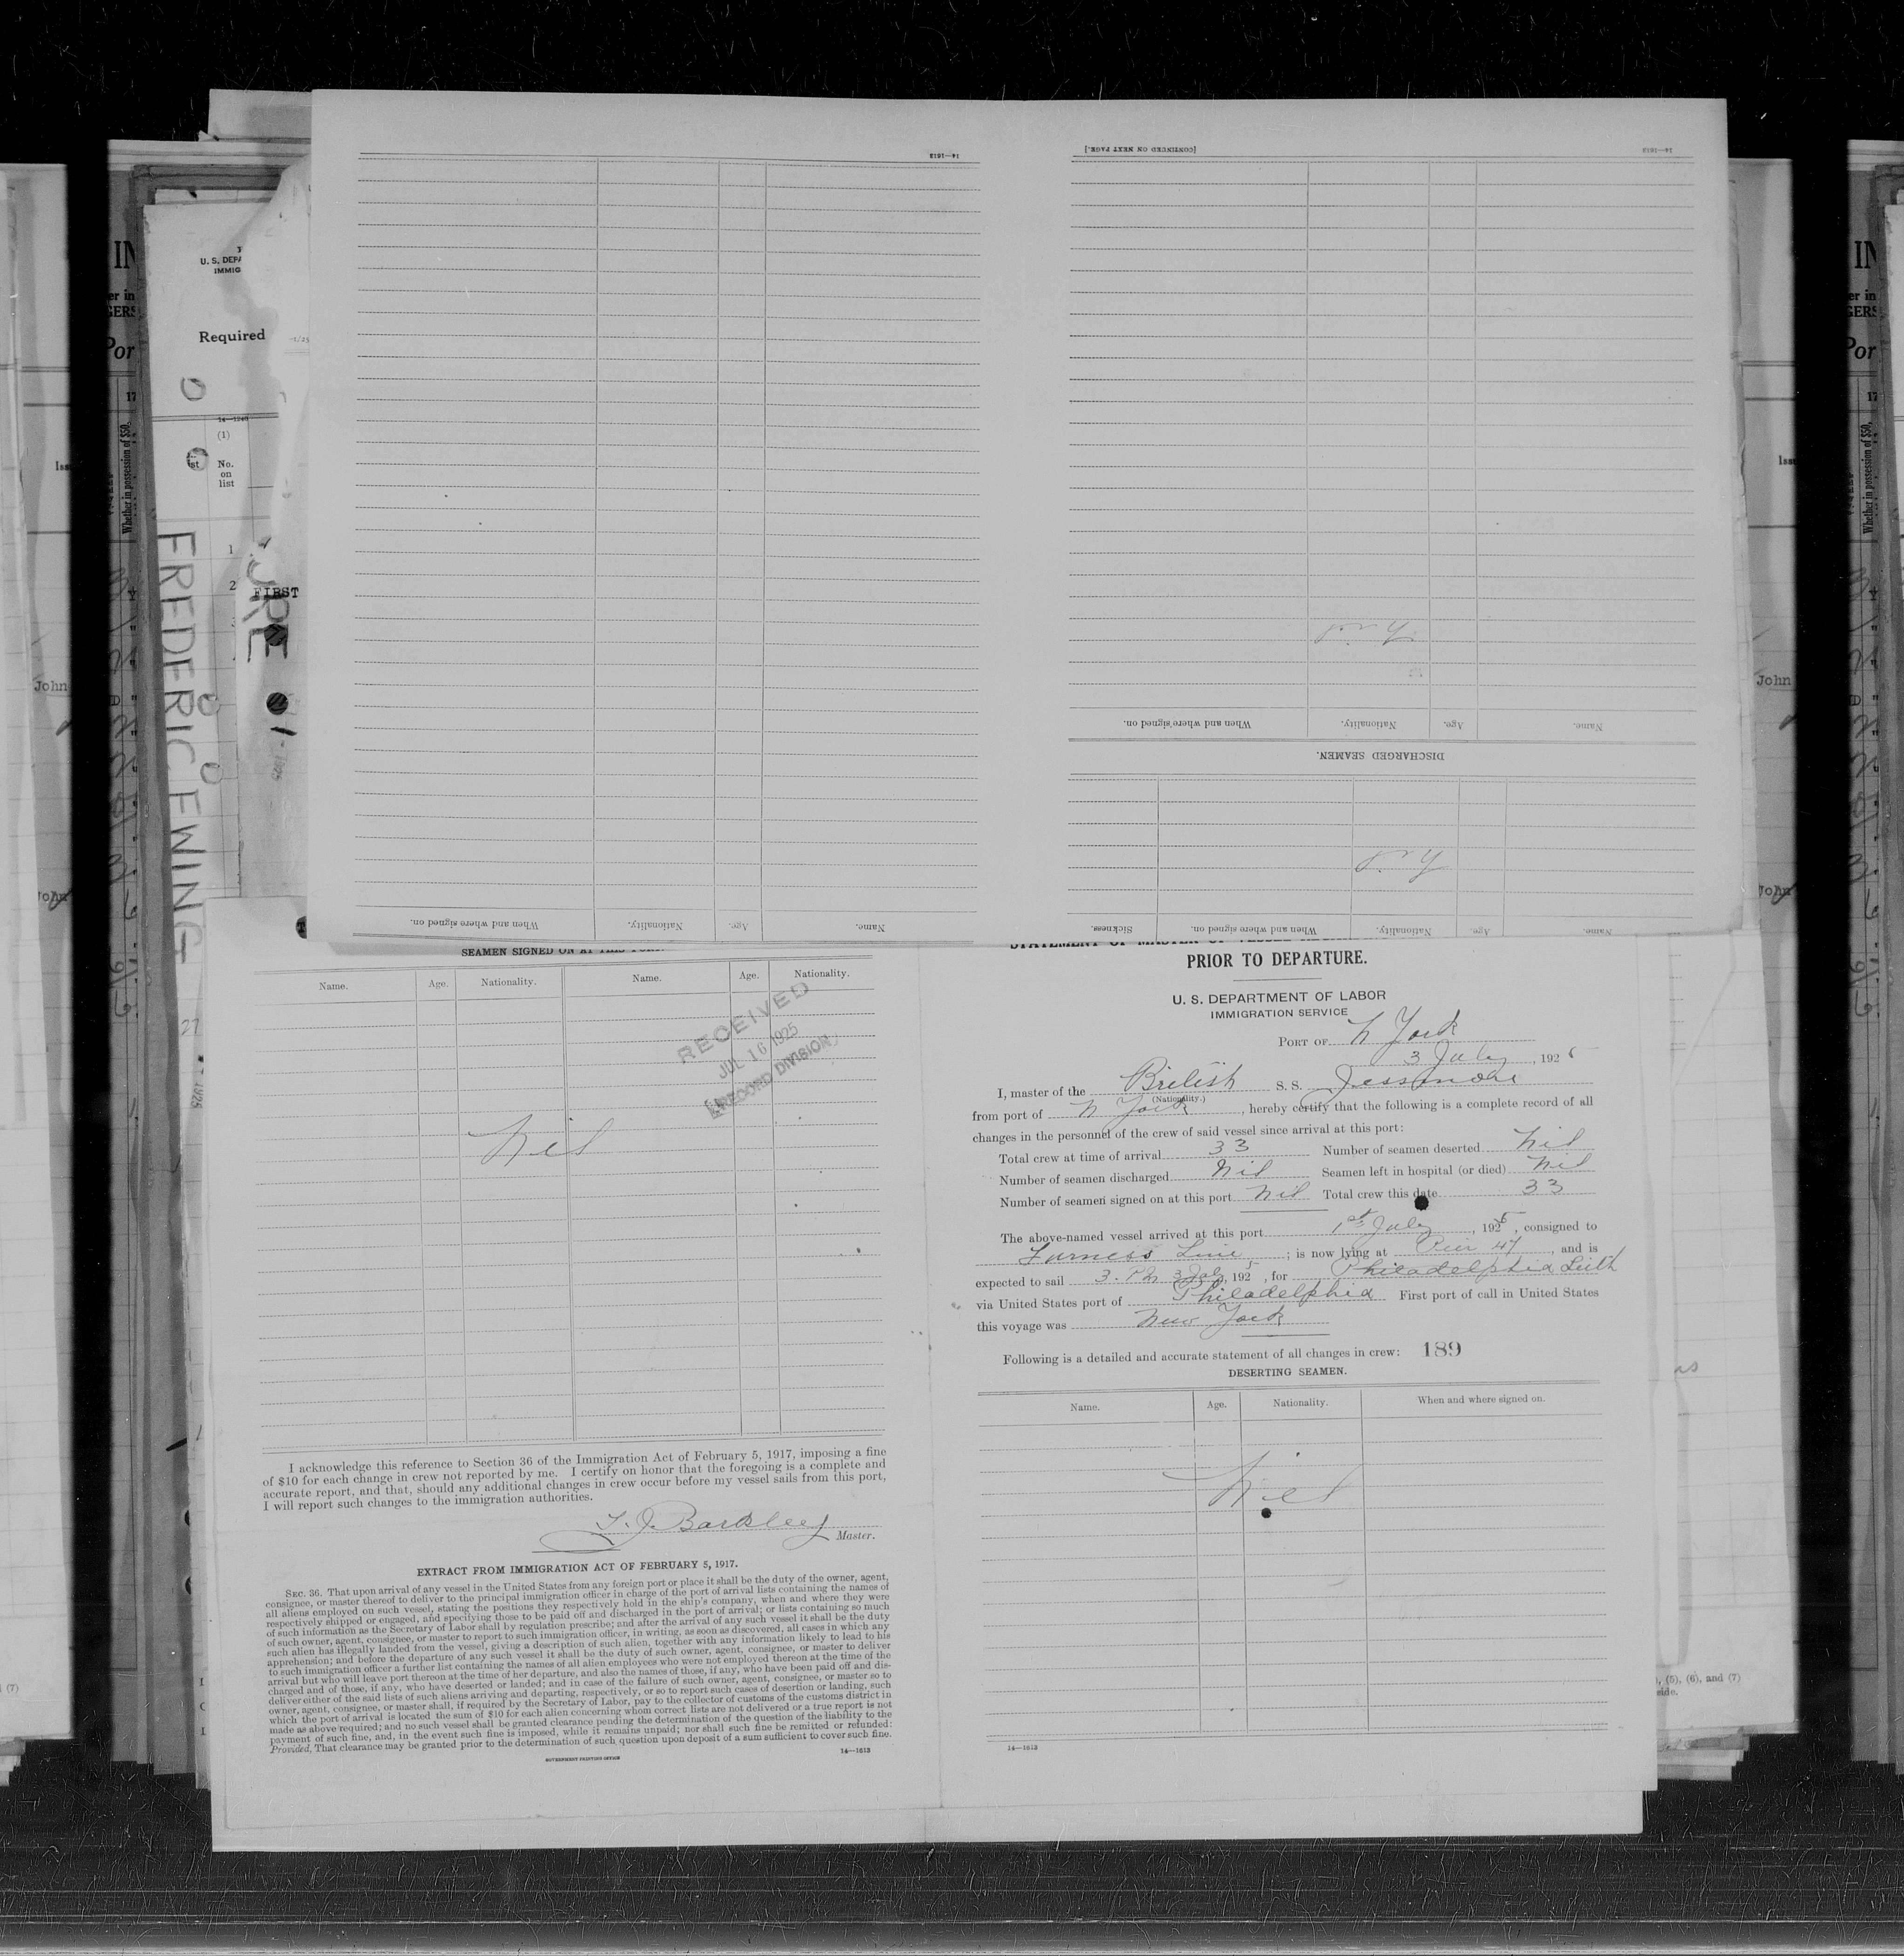 14—1613
[CONTINUED ON NEXT PAGE.]
14—1613
Name.
Age.
Nationality.
When and where signed on.
DISCHARGED SEAMEN.
Name.
Age.
Nationality.
When and where signed on.
Sickness.
Name.
Age.
Nationality.
When and where signed on.
U. S. DEPA
IMMIG
Required
14—1240
(1)
No.
on
list
1
2
FIRST
FREDERIC EWING
27
IN
er in
GERS
Por
17
Whether in possession of $50,
Iss
John
John
(7)
SEAMEN SIGNED ON AT THIS PORT.
Name. Age. Nationality. Name. Age. Nationality.
RECEIVED
JUL 16 1925
RECORD DIVISION
Nil
I acknowledge this reference to Section 36 of the Immigration Act of February 5, 1917, imposing a fine
of $10 for each change in crew not reported by me. I certify on honor that the foregoing is a complete and
accurate report, and that, should any additional changes in crew occur before my vessel sails from this port,
I will report such changes to the immigration authorities.
T. J. Barkley
Master.
EXTRACT FROM IMMIGRATION ACT OF FEBRUARY 5, 1917.
SEC. 36. That upon arrival of any vessel in the United States from any foreign port or place it shall be the duty of the owner, agent,
consignee, or master thereof to deliver to the principal immigration officer in charge of the port of arrival lists containing the names of
all aliens employed on such vessel, stating the positions they respectively hold in the ship's company, when and where they were
respectively shipped or engaged, and specifying those to be paid off and discharged in the port of arrival; or lists containing so much
of such information as the Secretary of Labor shall by regulation prescribe; and after the arrival of any such vessel it shall be the duty
of such owner, agent, consignee, or master to report to such immigration officer, in writing, as soon as discovered, all cases in which any
such alien has illegally landed from the vessel, giving a description of such alien, together with any information likely to lead to his
apprehension; and before the departure of any such vessel it shall be the duty of such owner, agent, consignee, or master to deliver
to such immigration officer a further list containing the names of all alien employees who were not employed thereon at the time of the
arrival but who will leave port thereon at the time of her departure, and also the names of those, if any, who have been paid off and dis-
charged and of those, if any, who have deserted or landed; and in case of the failure of such owner, agent, consignee, or master so to
deliver either of the said lists of such aliens arriving and departing, respectively, or so to report such cases of desertion or landing, such
owner, agent, consignee, or master shall, if required by the Secretary of Labor, pay to the collector of customs of the customs district in
which the port of arrival is located the sum of $10 for each alien concerning whom correct lists are not delivered or a true report is not
made as above required; and no such vessel shall be granted clearance pending the determination of the question of the liability to the
payment of such fine, and, in the event such fine is imposed, while it remains unpaid; nor shall such fine be remitted or refunded:
Provided, That clearance may be granted prior to the determination of such question upon deposit of a sum sufficient to cover such fine.
GOVERNMENT PRINTING OFFICE
14—1613
STATEMENT OF MASTER OF VESSEL
PRIOR TO DEPARTURE.
U. S. DEPARTMENT OF LABOR
IMMIGRATION SERVICE
PORT OF N York
3 July, 1925
I, master of the British S. S. Jessmore
(Nationality.)
from port of N York, hereby certify that the following is a complete record of all
changes in the personnel of the crew of said vessel since arrival at this port:
Total crew at time of arrival 33 Number of seamen deserted Nil
Number of seamen discharged Nil Seamen left in hospital (or died) Nil
Number of seamen signed on at this port Nil Total crew this date 33
The above-named vessel arrived at this port 1st July, 1925, consigned to
Furness Line; is now lying at Pier 47, and is
expected to sail 3. PM 3 July, 1925, for Philadelphia Leith
via United States port of Philadelphia First port of call in United States
this voyage was New York
Following is a detailed and accurate statement of all changes in crew: 189
DESERTING SEAMEN.
Name. Age. Nationality. When and where signed on.
Nil
14—1613
, (5), (6), and (7)
side.
IN
er in
GERS
Por
17
Whether in possession of $50,
Iss
John
John